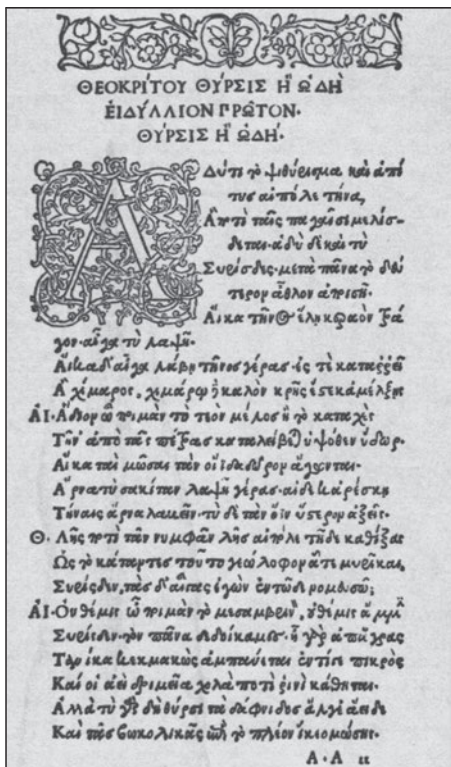 ΘΕΟΚΡΙΤΟΥ ΘΥΡΣΙΣ Ἢ ὨΔῊ
ἘΙΔΥΛΛΙΟΝ ΠΡΩ͂ΤΟΝ·
ΘΥΡΣΙΣ Ἢ ὨΔΉ·
Αδύ τι τὸ ψιθύρισμα καὶ ἁ πί
τυς αἰπόλε τήνα,
Ἃ ποτὶ ταῖς παγαῖσι μελίσ-
δεται· ἁδὺ δὲ καὶ τὺ
Συρίσδες· μετὰ πᾶνα τὸ δεύ
τερον ἆθλον ἀποισῇ·
Αἴκα τῆνος ἕλῃ κεραὸν τρά
γον· αἶγα τὺ λαψῇ·
Αἴκα δ' αἶγα λάβῃ τῆνος γέρας· ἐς τὲ καταρρεῖ
Ἁ χίμαρος, χιμάρω δὲ καλὸν κρῆς ἔστε κ' ἀμέλξῃς
ΑΙ· Ἅδιον ὦ ποιμὰν τὸ τεὸν μέλος ἢ τὸ καταχὲς
Τῆν' ἀπὸ τᾶς πέτρας καταλείβεται ὑψόθεν ὕδωρ·
Αἴκα ταὶ μῶσαι τὰν οἴιδα δῶρον ἄγωνται·
Ἄρνα τὺ σακίταν λαψῇ γέρας· αἰ δέ κ' ἀρέσκῃ
Τήναις ἄρνα λαβεῖν· τὺ δὲ τὰν ὄϊν ὕστερον ἀξεῖς·
Θ· Λῇς ποτὶ τᾶν νυμφᾶν λῇς αἰπόλε τῇδε καθίξας
Ὡς τὸ κάταντες τοῦτο γεώλοφον ᾇτε μυρῖκαι,
Συρίσδεν, τὰς δ' αἶγας ἐγὼν ἐν τῷδε νομευσῶ;
ΑΙ· Οὐ θέμις ὦ ποιμὰν τὸ μεσαμβρινὸν, οὐ θέμις ἄμμιν
Συρίσδεν· τὸν πᾶνα δεδοίκαμες· ἦ γὰρ ἀπ' ἄγρας
Τανίκα κεκμακὼς ἀμπαύεται ἐντί γε πικρὸς
Καὶ οἱ ἀεὶ δριμεῖα χολὰ ποτὶ ῥινὶ κάθηται·
Ἀλλὰ τὺ γὰρ δὴ θύρσι τὰ δάφνιδος ἄλγε' ἄειδες
Καὶ τᾶς βωκολικᾶς ἐπὶ τὸ πλέον ἵκεο μώσης·
Α·Α ιι